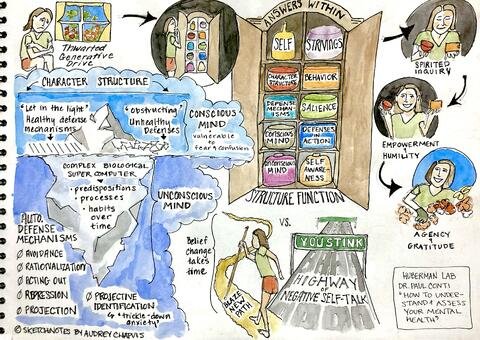 Thwarted
Generative
Drive
CHARACTER STRUCTURE
"Let in the light"
Healthy defense
mechanisms
"obstructing"
Unhealthy
Defenses
CONSCIOUS
MIND
vulnerable
to
fear & confusion
COMPLEX BIOLOGICAL
SUPER COMPUTER
• predispositions
• processes
• habits
over
time
UNCONSCIOUS
MIND
AUTO.
DEFENSE
MECHANISMS
Ø AVOIDANCE
Ø RATIONALIZATION
Ø ACTING OUT
Ø REPRESSION
Ø PROJECTION
Ø PROJECTIVE
IDENTIFICATION
& "trickle-down
anxiety"
© SKETCHNOTES BY AUDREY CHAPUIS
ANSWERS WITHIN
SELF
STRIVINGS
CHARACTER
STRUCTURE
BEHAVIOR
DEFENSE
MECHAN-
ISMS
SALIENCE
CONSCIOUS
MIND
DEFENSES
IN
ACTION
UNCONSCIOUS
MIND
SELF
AWARE-
NESS
STRUCTURE
FUNCTION
Belief
change
takes
time
BLAZE A NEW
PATH
VS.
YOU STINK
HIGHWAY
OF
NEGATIVE SELF-TALK
SPIRITED
INQUIRY
EMPOWERMENT
+
HUMILITY
AGENCY
+
GRATITUDE
HUBERMAN LAB
DR. PAUL CONTI
"HOW TO UNDER-
STAND & ASSESS
YOUR MENTAL
HEALTH"